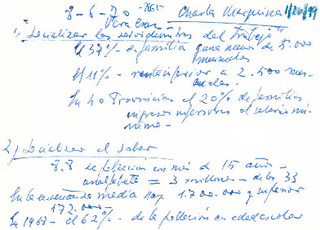 8-6-70
Veracruz - Charla Marquina 1/20/99
1) "Socializar los rendimientos del trabajo"
El 37% de familia gana menos de 5.000
mensuales
El 11% - renta inferior a 2.500 men-
suales.
En 40 Provincias el 20% de familias
ingresos inferiores al salario mí-
nimo -
2) Socializar el saber
8.8 de población con más de 15 años -
analfabeta = 3 millones - de los 33
En la enseñanza media hay 1.700.000 y superior
172.000
En 1967 - el 62% - de la población en edad escolar